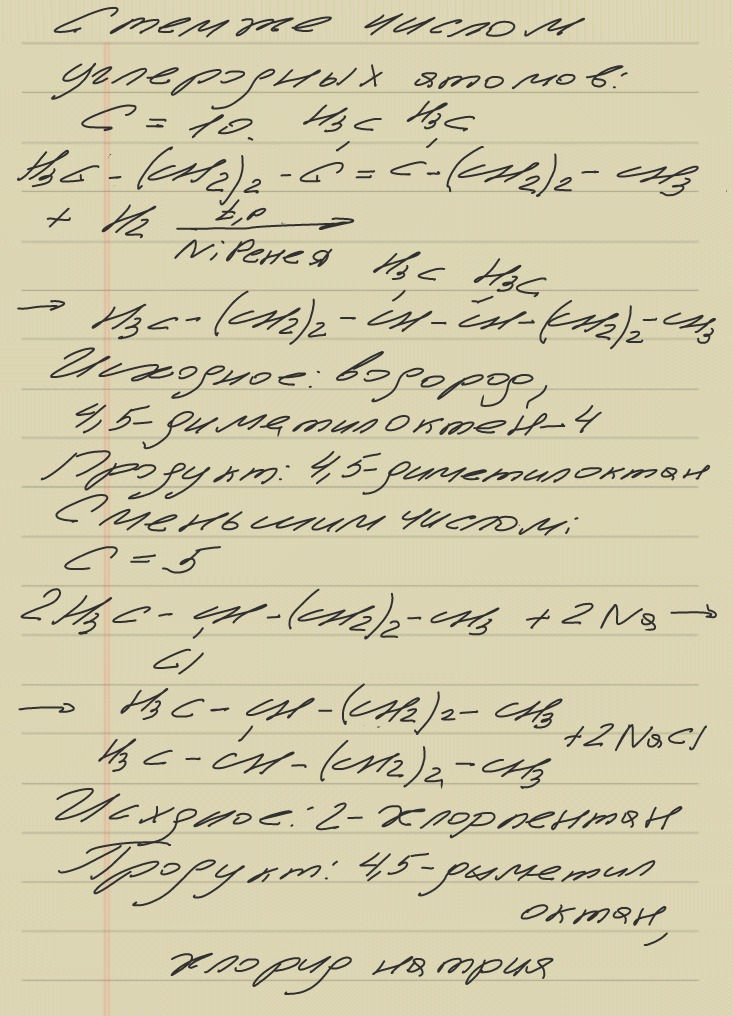 С тем же числом
углеродных атомов:
C = 10. H₃C H₃C
H₃C - (CH₂)₂ - C = C - (CH₂)₂ - CH₃
+ H₂ t,p
Ni Ренея H₃C H₃C
→ H₃C - (CH₂)₂ - CH - CH - (CH₂)₂ - CH₃
Исходное: водород,
4,5-диметилоктен-4
Продукт: 4,5-диметилоктан
С меньшим числом:
C = 5
2H₃C - CH - (CH₂)₂ - CH₃ + 2Na →
Cl
→ H₃C - CH - (CH₂)₂ - CH₃
+2NaCl
H₃C - CH - (CH₂)₂ - CH₃
Исходное: 2-хлорпентан
Продукт: 4,5-диметил
октан,
хлорид натрия